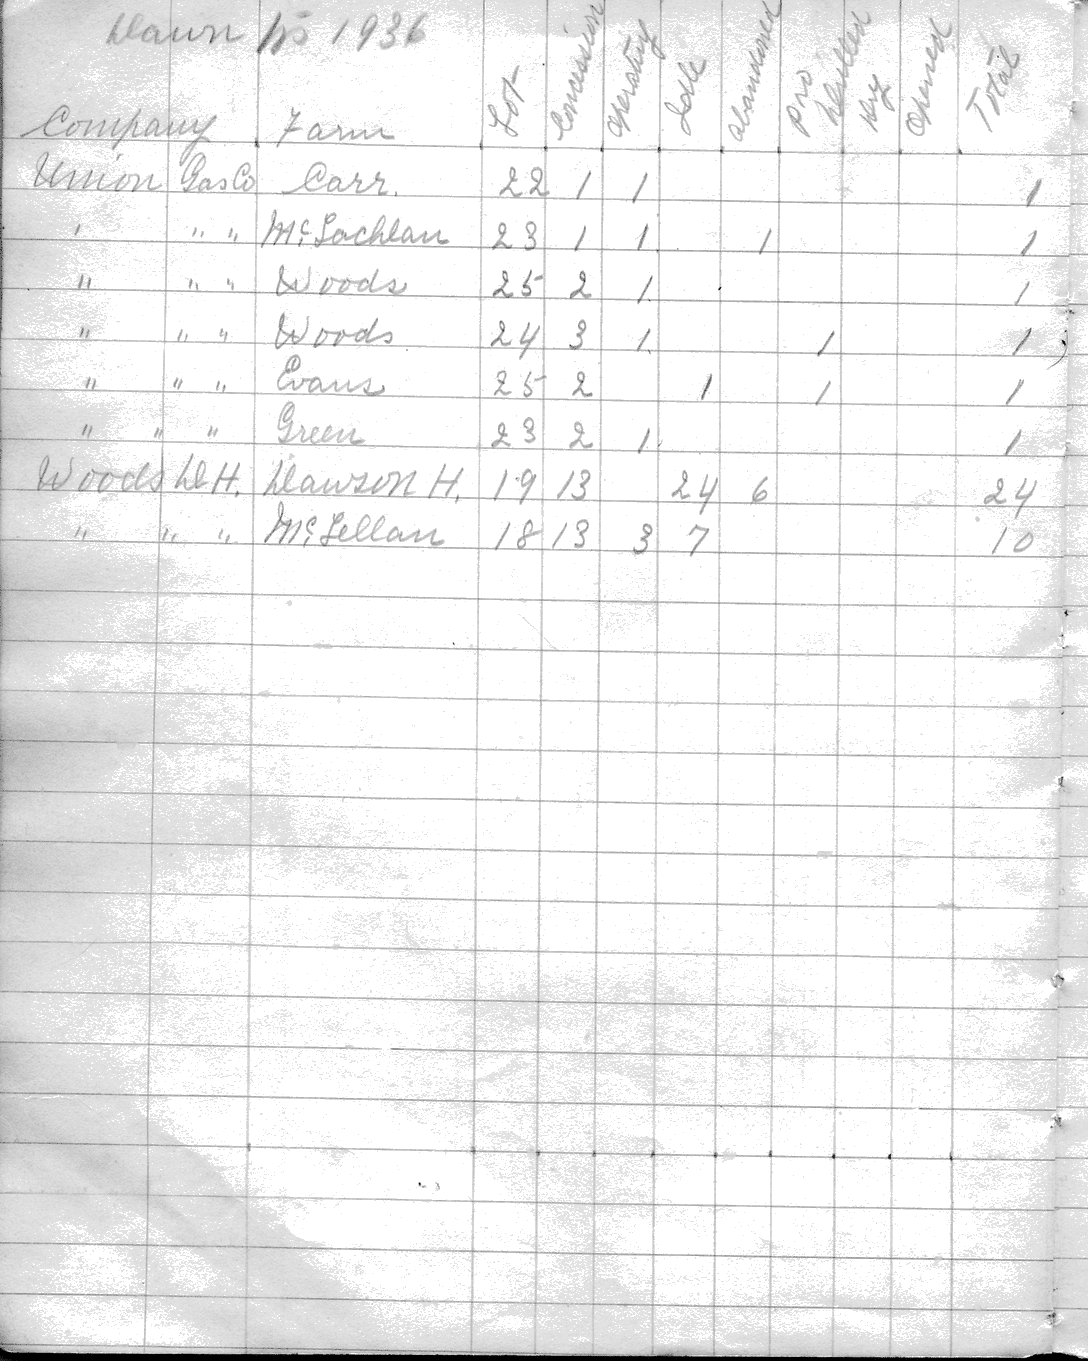 Dawn 1936
Company Farm Lot Concession Operating Idle Abandoned Pro Drilled Dry Opened Total
Union Gas Co Carr. 22 1 1 1
" " " McLachlan 23 1 1 1 1
" " " Woods 25 2 1 1
" " " Woods 24 3 1 1 1
" " " Evans 25 2 1 1 1
" " " Green 23 2 1 1
Woods D H. Dawson H. 19 13 24 6 24
" " " McLellan 18 13 3 7 10